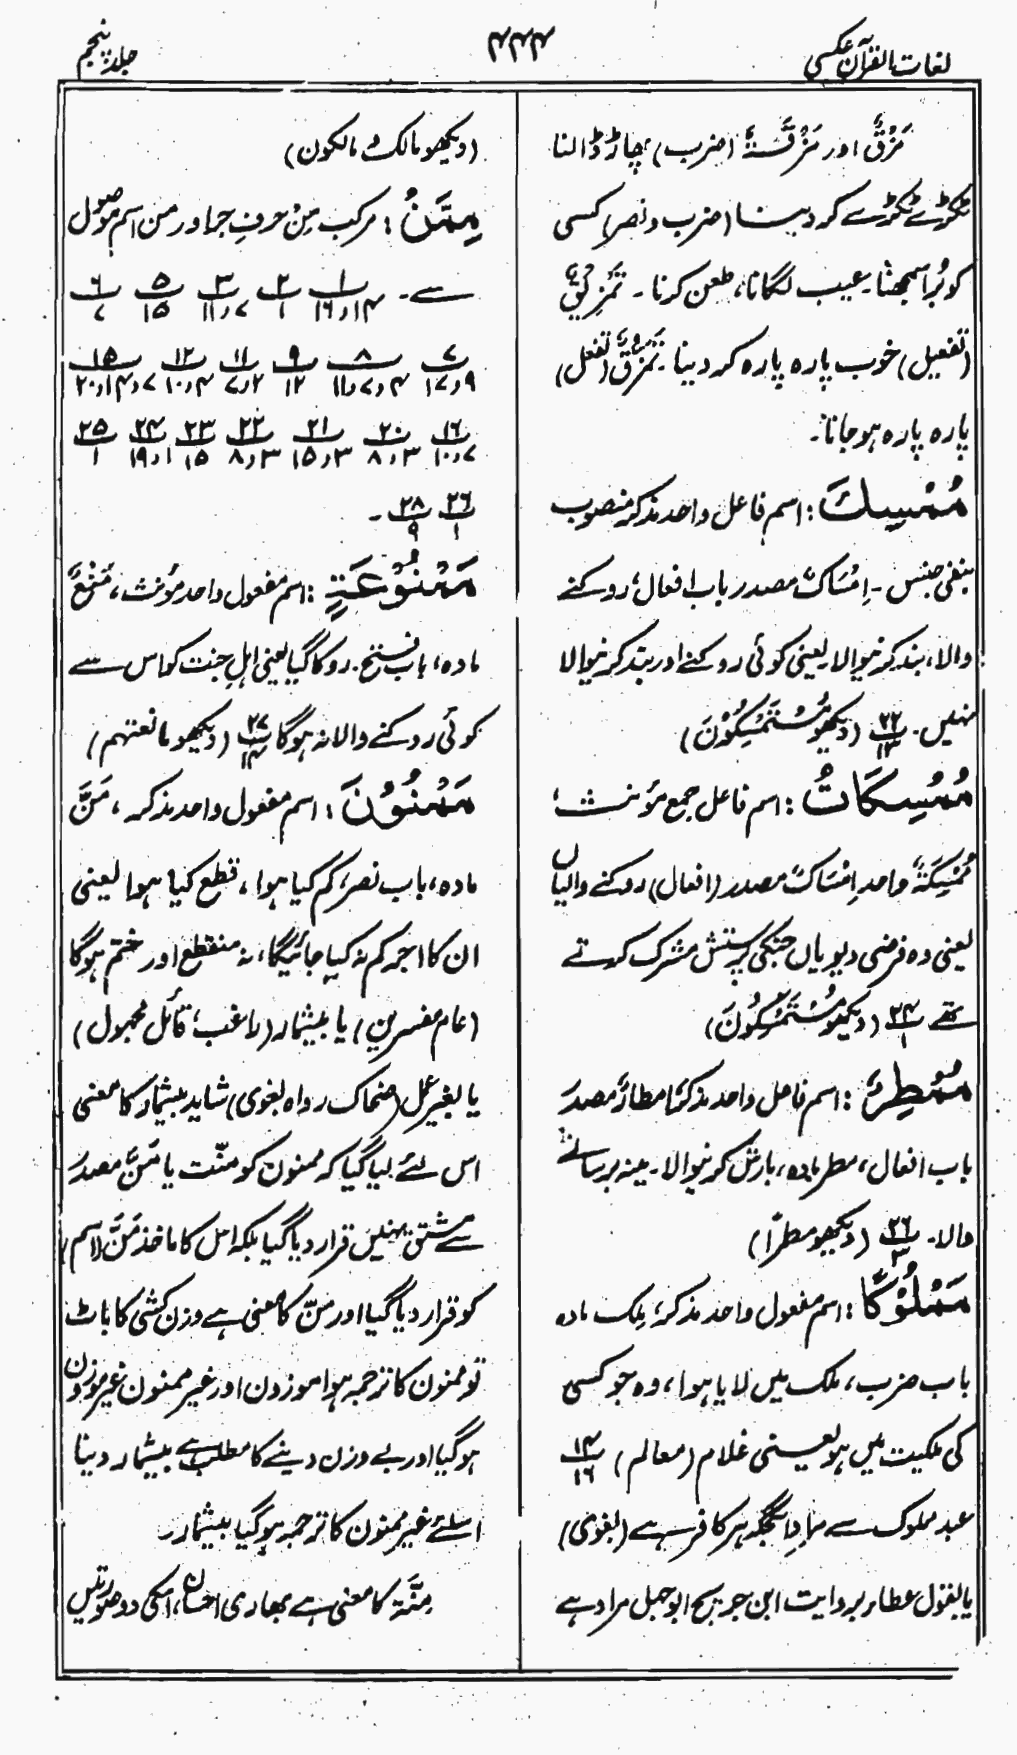 لغات القرآن عکسی
۴۴۴
جلد پنجم
مَزْقٌ اور مَزْقَۃٌ (ضرب) پھاڑ ڈالنا
ٹکڑے ٹکڑے کر دینا (ضرب و نصر) کسی
کو بُرا سمجھنا۔ عیب لگانا، طعن کرنا ۔ تَمْزِیْقٌ
(تفعیل) خوب پارہ پارہ کر دینا ۔ تَمَزُّقٌ (تفعل)
پارہ پارہ ہوجانا۔
مُمْسِكَ : اسم فاعل واحد مذکر منصوب
بنفی جنس ۔ اِمْسَاکٌ مصدر باب افعال؛ روکنے
والا، بند کرنیوالا۔ یعنی کوئی روکنے اور بند کرنیوالا
نہیں۔ ۲۲/۱۳ (دیکھو مُسْتَمْسِکُوْنَ)
مُمْسِكَاتُ : اسم فاعل جمع مؤنث،
مُمْسِکَۃٌ واحد اِمْسَاکٌ مصدر (افعال) روکنے والیاں
یعنی وہ فرضی دیویاں جنکی پرستش مشرک کرتے
تھے ۲۴/۱ (دیکھو مُسْتَمْسِکُوْنَ)
مُمْطِرُ : اسم فاعل واحد مذکر، اِمطارٌ مصدر
باب افعال، مطر مادہ، بارش کرنیوالا۔ مینہ برسانے
والا۔ ۲۶/۳ (دیکھو مطرًا)
مَمْلُوْكًا : اسم مفعول واحد مذکر، مِلک مادہ
باب ضرب، ملک میں لایا ہوا، وہ جو کسی
کی ملکیت میں ہو یعنی غلام (معالم) ۱۴/۱۶
عبد مملوک سے مراد اسجگہ ہر کافر ہے (بغوی)
یا بقول عطاء بروایت ابن جریج ابوجہل مراد ہے
(دیکھو مالک و مالکون)
مِمَّنْ : مرکب مِنْ حرفِ جر اور من اسم موصول
سے۔ ۱/۱۴و۱۶ ۲/۱ ۳/۷و۱۱ ۵/۱۵ ۶/۷
۷/۹و۱۷ ۸/۴و۷و۱۱ ۹/۱۲ ۱۱/۲و۷ ۱۲/۴و۱۰ ۱۵/۷و۱۴و۲۰
۱۶/۷و۱۰ ۲۰/۳و۸ ۲۱/۳و۱۵ ۲۲/۳و۸ ۲۳/۱۵ ۲۴/۱و۱۹ ۲۵/۱
۲۶/۱ ۲۸/۹ ۔
مَمْنُوْعَةٍ : اسم مفعول واحد مؤنث، مَنْعٌ
مادہ، باب فتح۔ روکا گیا یعنی اہلِ جنت کو اس سے
کوئی روکنے والا نہ ہوگا ۲۷/۱۴ (دیکھو مانعتهم)
مَمْنُوْنَ : اسم مفعول واحد مذکر ، مَنَّ
مادہ، باب نصر، کم کیا ہوا ، قطع کیا ہوا یعنی
ان کا اجر کم نہ کیا جائیگا، نہ منقطع اور ختم ہوگا
(عام مفسرین) یا بیشمار (راغب، قائل مجہول)
یا بغیر عمل (ضحاک رواہ بغوی) شاید بیشمار کا معنی
اس لئے لیا گیا کہ ممنون کو منّت یا مَنٌّ مصدر
سے مشتق نہیں قرار دیا گیا بلکہ اس کا ماخذ مَنَّ (اسم)
کو قرار دیا گیا اور منّ کا معنی ہے وزن کشی کا باٹ
تو ممنون کا ترجمہ ہوا موزون اور غیر ممنون غیر موزون
ہوگیا اور بے وزن دینے کا مطلب ہے بیشمار دینا
اسلئے غیر ممنون کا ترجمہ ہوگیا بیشمار۔
مِنَّۃ کا معنی ہے بھاری احسان، اسکی دو صورتیں